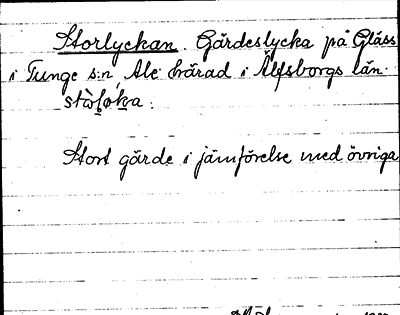 Storlyckan. Gärdeslycka på Gläss
i Tunge s:n Ale härad i Älfsborgs län.
Stort gärde i jämförelse med övriga